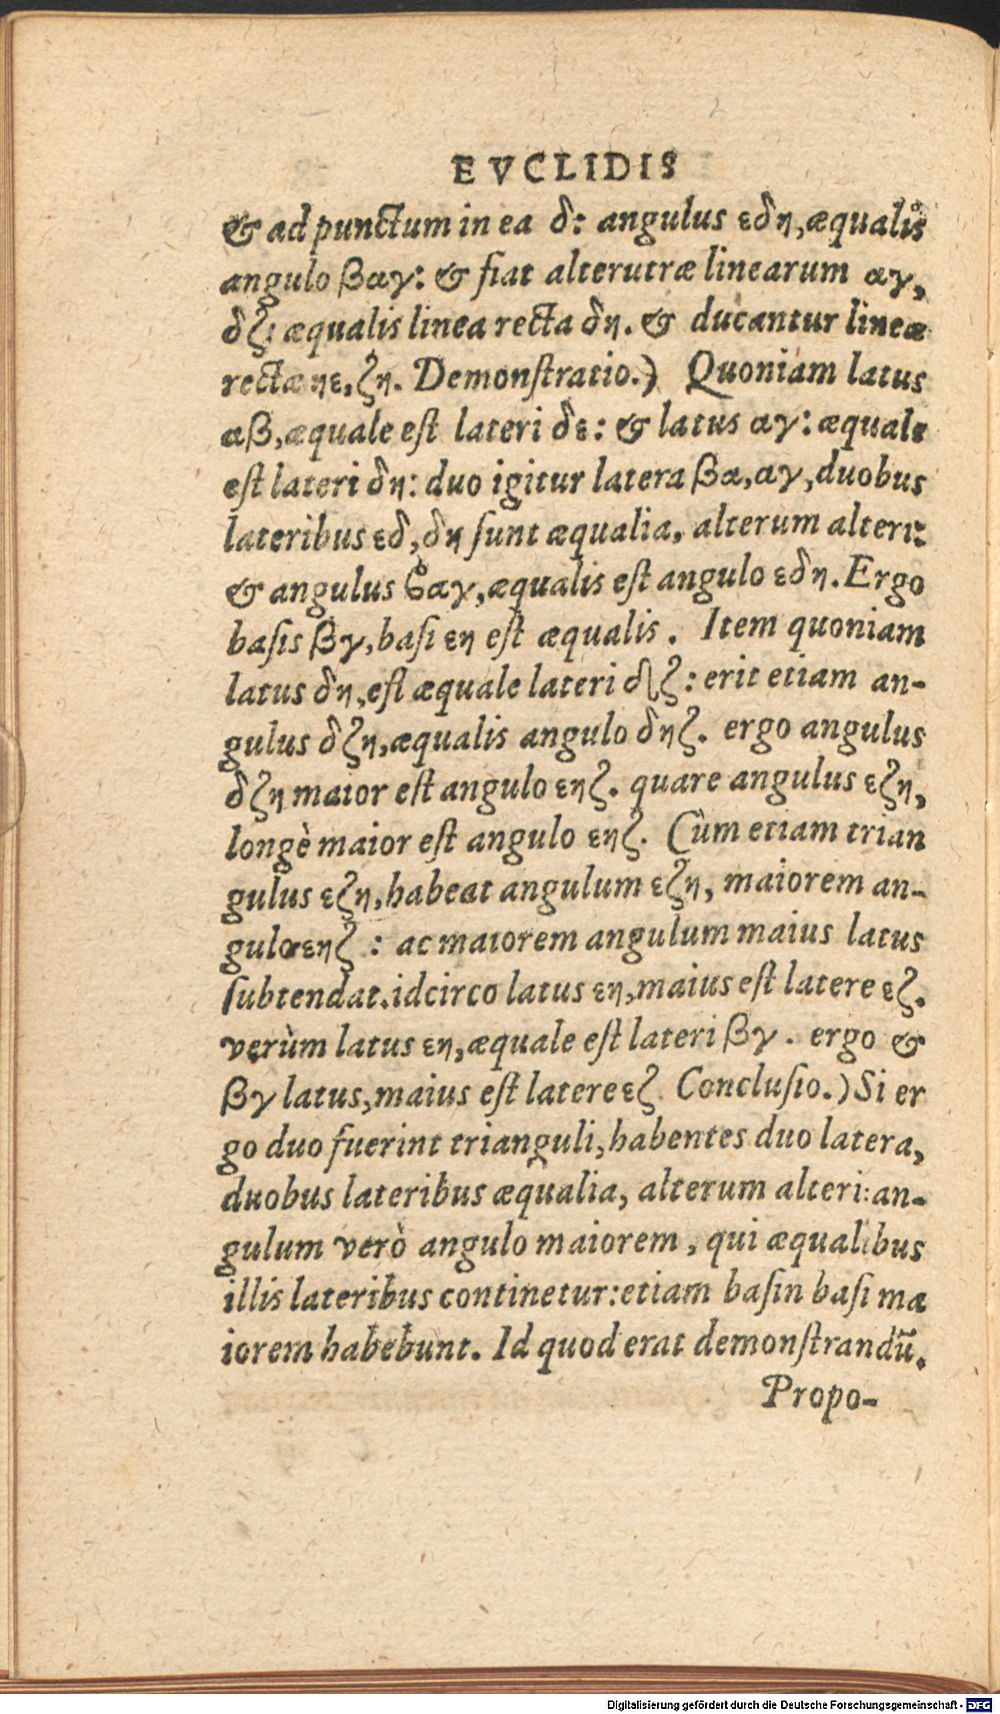 EVCLIDIS
& ad punctum in ea δ: angulus εδη, æqualis
angulo βαγ: & fiat alterutræ linearum αγ,
δζ: æqualis linea recta δη. & ducantur lineæ
rectæ ηε, ζη. Demonſtratio.) Quoniam latus
αβ, æquale eſt lateri δε: & latus αγ: æquale
eſt lateri δη: duo igitur latera βα, αγ, duobus
lateribus εδ, δη ſunt æqualia, alterum alteri:
& angulus ϐαγ, æqualis eſt angulo εδη. Ergo
baſis βγ, baſi εη eſt æqualis. Item quoniam
latus δη, eſt æquale lateri δζ: erit etiam an-
gulus δζη, æqualis angulo δηζ. ergo angulus
δζη maior eſt angulo εηζ. quare angulus εζη,
longè maior eſt angulo εηζ. Cùm etiam trian
gulus εζη, habeat angulum εζη, maiorem an-
gulo εηζ: ac maiorem angulum maius latus
ſubtendat. idcirco latus εη, maius eſt latere εζ.
verùm latus εη, æquale eſt lateri βγ. ergo &
βγ latus, maius eſt latere εζ Concluſio.) Si er
go duo fuerint trianguli, habentes duo latera,
duobus lateribus æqualia, alterum alteri: an-
gulum verò angulo maiorem, qui æqualibus
illis lateribus continetur: etiam baſin baſi ma
iorem habebunt. Id quod erat demonſtrandũ.
Propo-
Digitalisierung gefördert durch die Deutsche Forschungsgemeinschaft - DFG